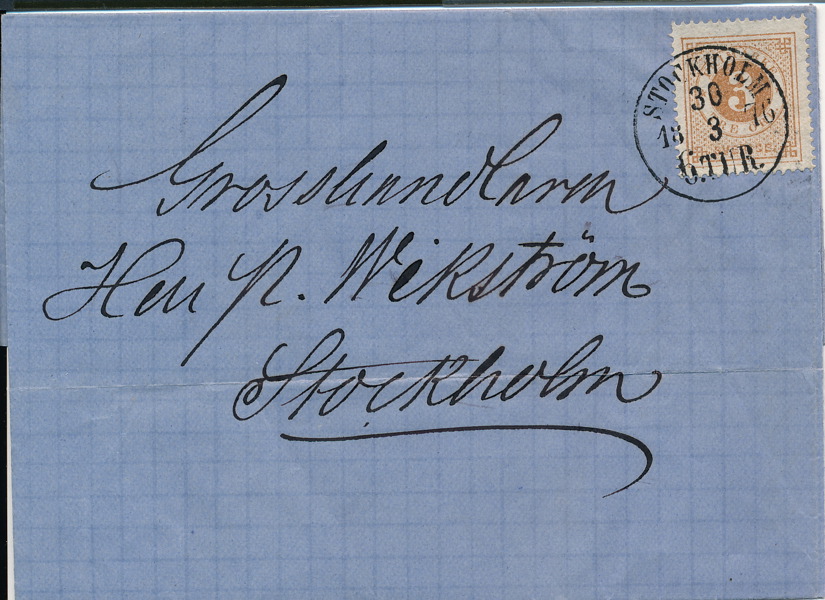 STOCKHOLM
30
18 3 76
6.TUR.
3
Grosshandlaren
Herr P. Wikström
Stockholm